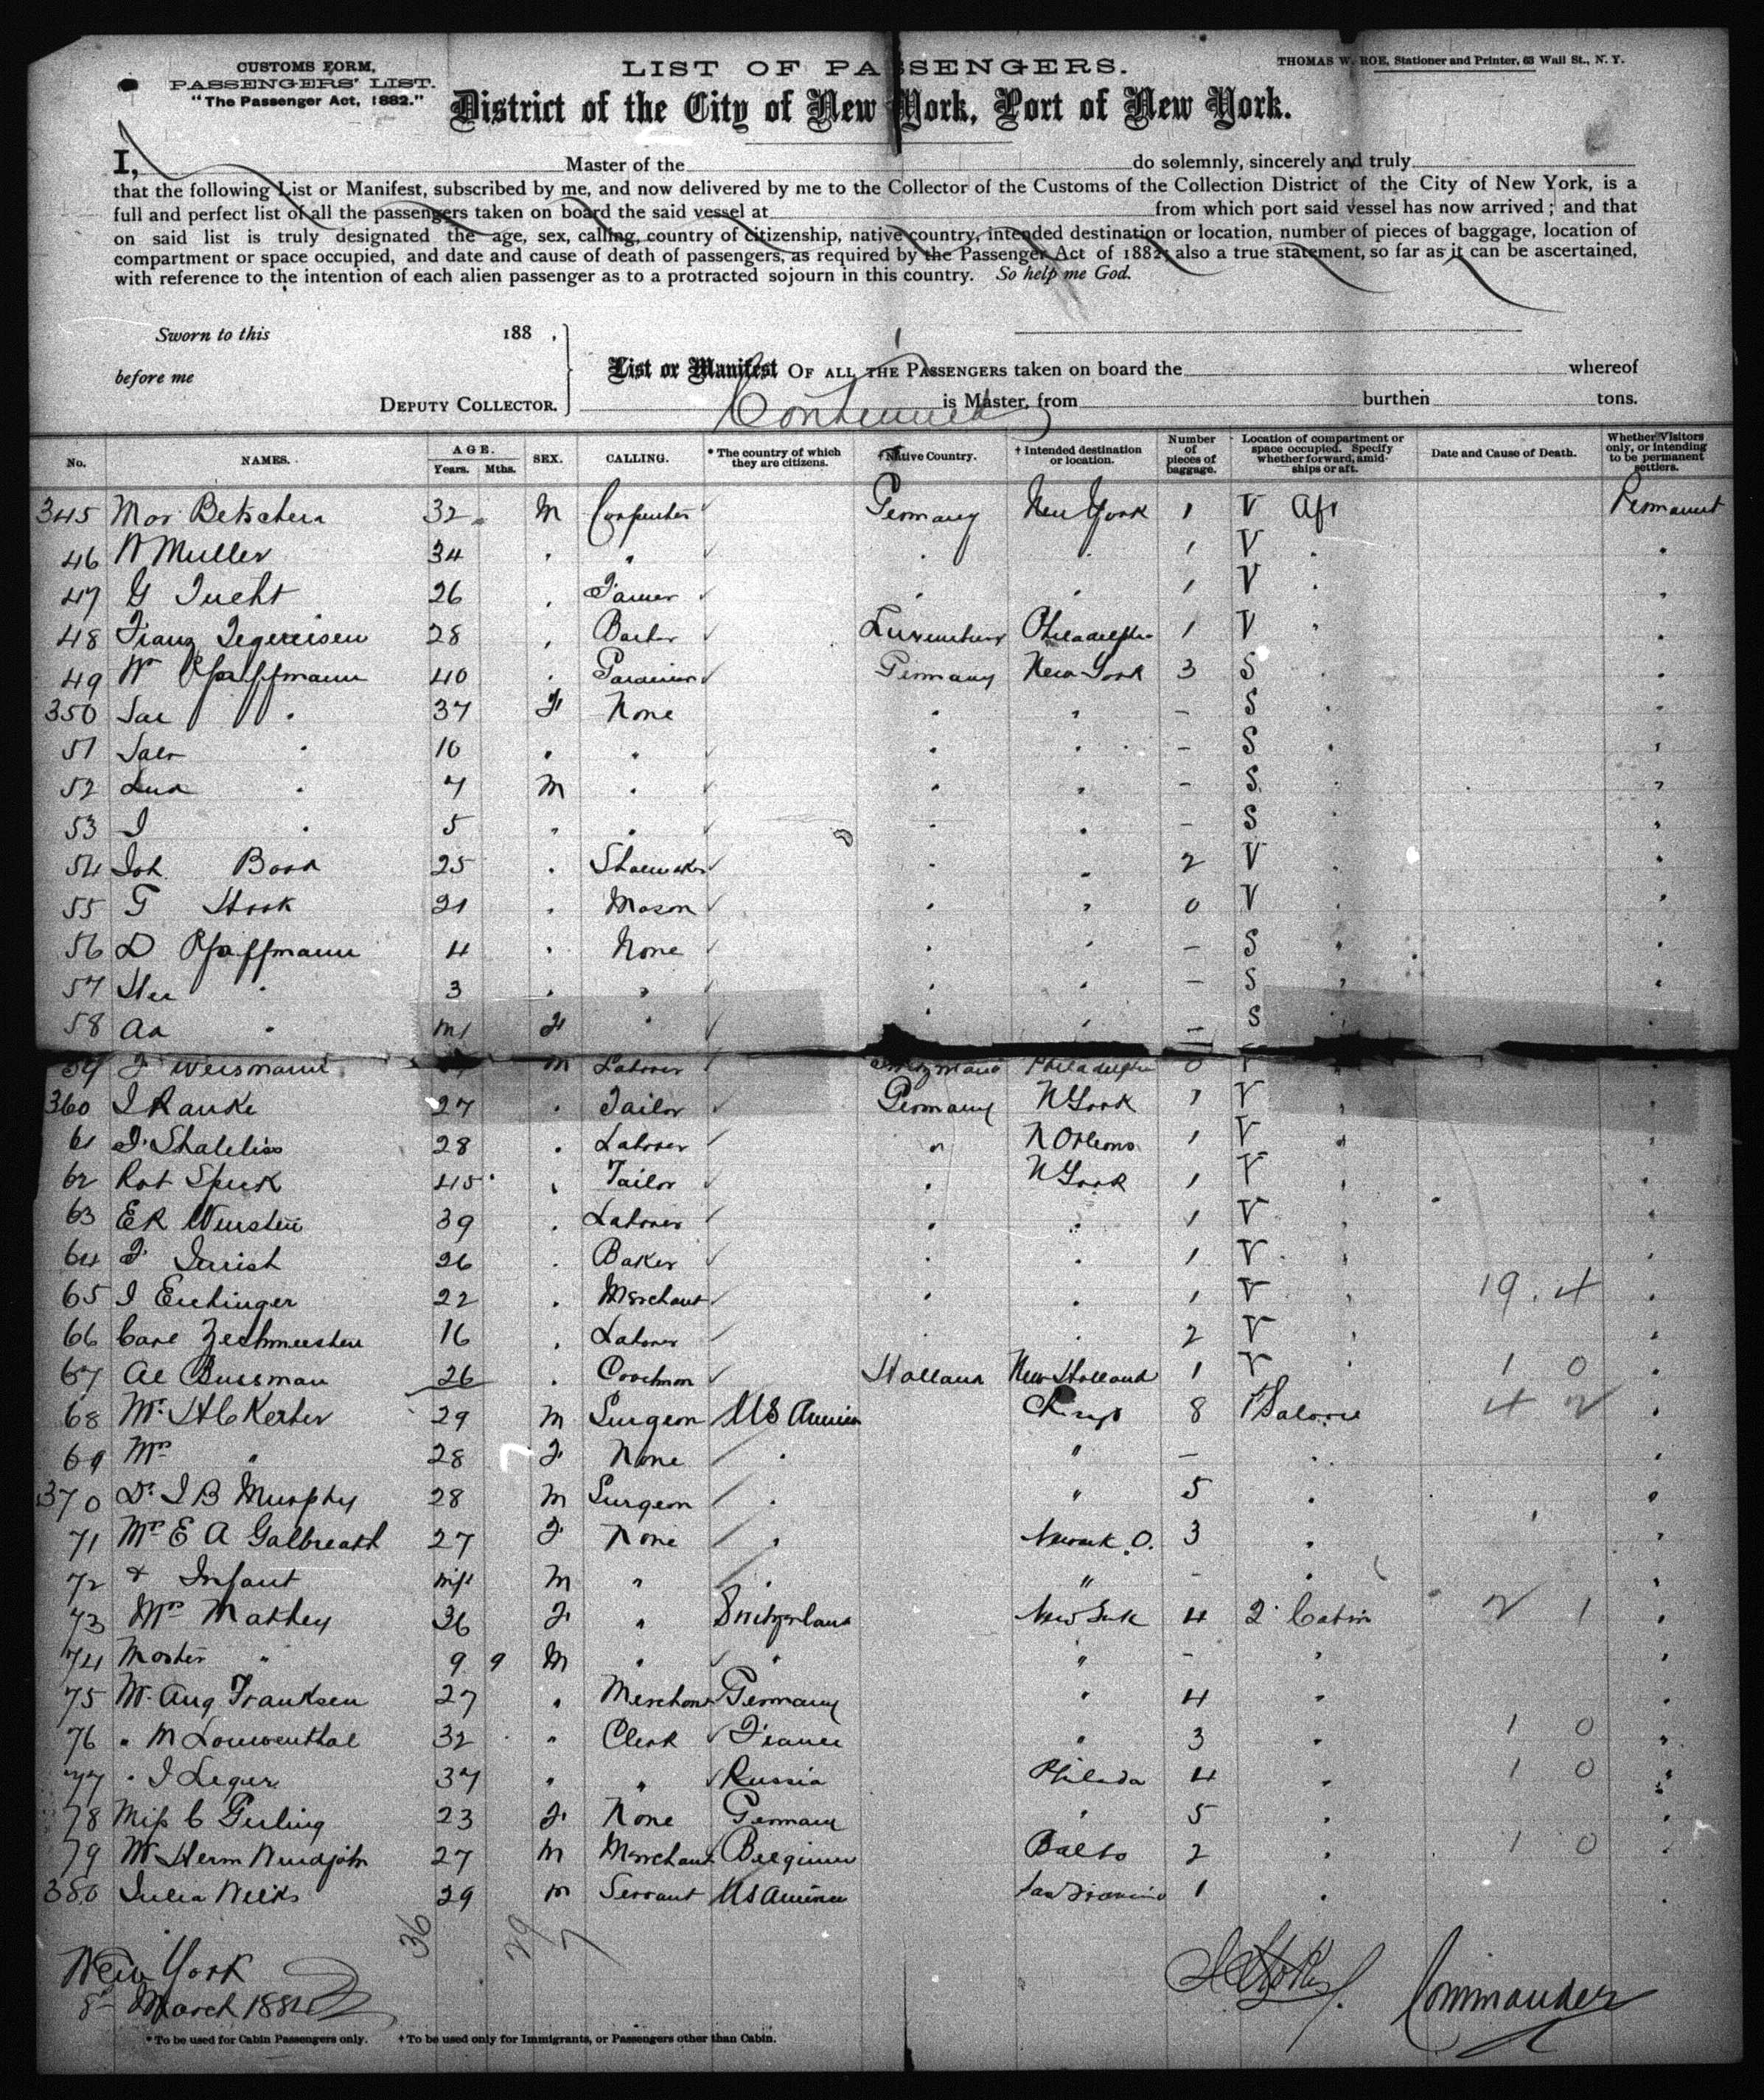 CUSTOMS FORM,
PASSENGERS' LIST.
"The Passenger Act, 1882."
LIST OF PASSENGERS.
THOMAS W. ROE, Stationer and Printer, 63 Wall St., N. Y.
District of the City of New York, Port of New York.
I, Master of the do solemnly, sincerely and truly
that the following List or Manifest, subscribed by me, and now delivered by me to the Collector of the Customs of the Collection District of the City of New York, is a
full and perfect list of all the passengers taken on board the said vessel at from which port said vessel has now arrived; and that
on said list is truly designated the age, sex, calling, country of citizenship, native country, intended destination or location, number of pieces of baggage, location of
compartment or space occupied, and date and cause of death of passengers, as required by the Passenger Act of 1882; also a true statement, so far as it can be ascertained,
with reference to the intention of each alien passenger as to a protracted sojourn in this country. So help me God.
Sworn to this 188 .
before me
DEPUTY COLLECTOR.
List or Manifest OF ALL THE PASSENGERS taken on board the whereof
is Master, from burthen tons.
Continued
No. NAMES. AGE. Years. Mths. SEX. CALLING. * The country of which they are citizens. † Native Country. † Intended destination or location. Number of pieces of baggage. Location of compartment or space occupied. Specify whether forward, amidships or aft. Date and Cause of Death. Whether Visitors only, or intending to be permanent settlers.
345 32 M Carpenter Germany New York 1 V Aft Permanent
46 Muller 34 " 1 V
47 G 26 1 V
48 Franz 28 Luxemburg Philadelphia 1 V
49 Wm Pfaffmann 40 Germany New York 3 S
350 " 37 F None - S
51 " 10 " - S
52 " 7 M - S
53 J " 5 - S
54 Joh 25 Shoemaker 2 V
55 G Hook 21 Mason 0 V
56 D Pfaffmann 4 None - S
57 " 3 " - S
58 " F " - S
59 F Weismann M Laborer Philadelphia 0
360 J Ranke 27 Tailor Germany N York 1 V
61 28 Laborer " N Orleans 1 V
62 Rob 45 Tailor N York 1 V
63 E R 39 Laborer 1 V
64 F 26 Baker 1 V
65 J 22 Merchant 1 V 19. 4
66 Carl Zechmeister 16 Laborer 2 V
67 Al Bussman 26 Coachman Holland New Holland 1 V 1 0
68 Mr. 29 M Surgeon US America Chicago 8 1 Salone 4 2
69 Mrs " 28 F None " -
370 Dr. J B Murphy 28 M Surgeon " 5
71 Mrs E A Galbreath 27 F None Newark O. 3
72 & Infant Inft M " " -
73 Mrs Mathey 36 F " Switzerland New York 4 2 Cabin 2 1
74 Master " 9 9 M " " -
75 Mr. Aug Franksen 27 Merchant Germany " 4
76 " M Louwenthal 32 " Clerk France " 3 1 0
77 " J Leger 37 " " Russia Philada 4 1 0
78 Miss C Gerling 23 F None Germany " 5
79 Mr Herm 27 M Merchant Belgium Balto 2 1 0
380 Julia Weiks 29 M Servant US America San 1
36 29 7
New York
8 March 188
Commander
* To be used for Cabin Passengers only. † To be used only for Immigrants, or Passengers other than Cabin.